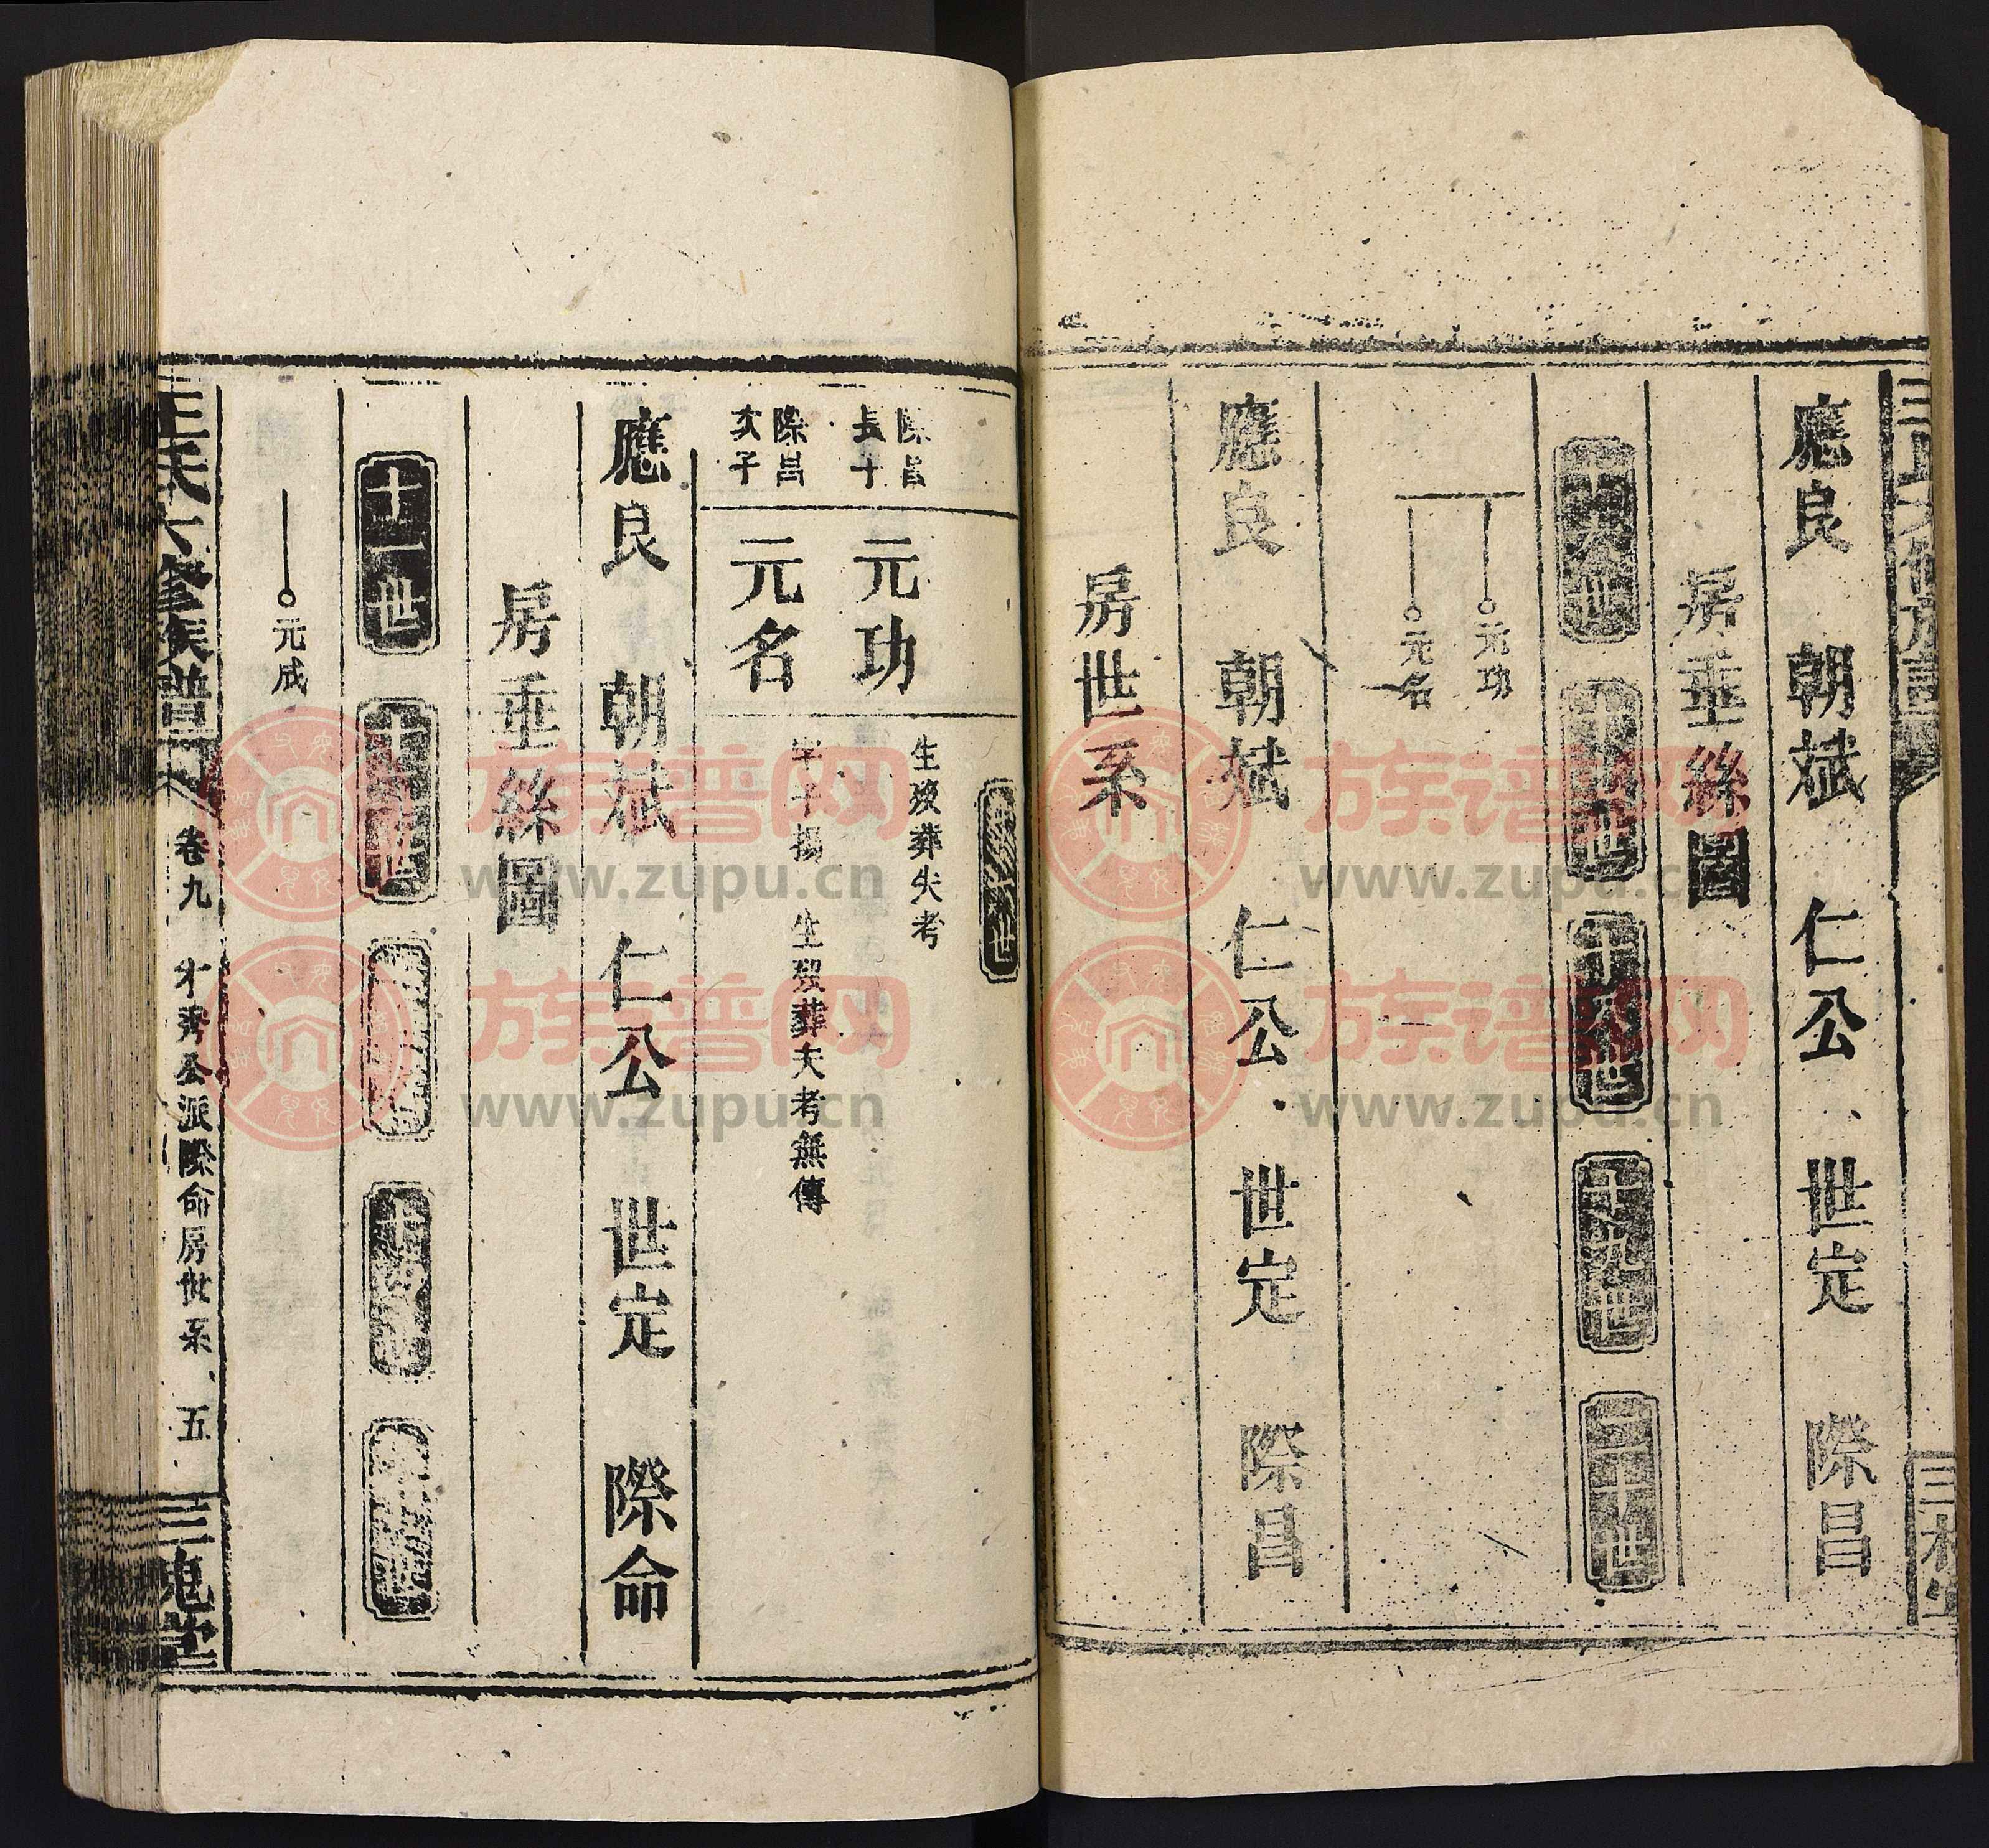 應良　朝斌　仁公　世定　際昌
房垂絲圖
十九世
二十世
元功
元名
應良　朝斌　仁公　世定　際昌
房世系
際昌
長子
元功
生歿葬失考
際昌
次子
元名
字子揚　生歿葬失考無傳
應良　朝斌　仁公　世定　際命
房垂絲圖
十一世
元成
王氏六修族譜
卷九
才秀公派際命房世系
五
三槐堂
族谱网
www.zupu.cn
族谱网
www.zupu.cn
族谱网
www.zupu.cn
族谱网
www.zupu.cn